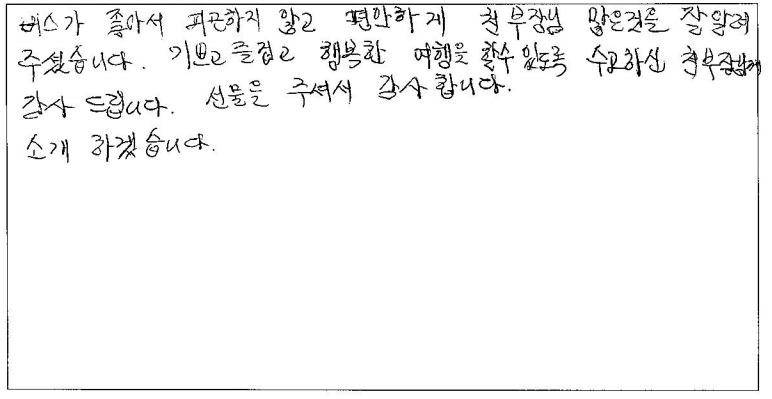 버스가 좋아서 피곤하지 않고 편안하게 천부장님 많은것을 잘 알려
주셨습니다. 기쁘고 즐겁고 행복한 여행을 할수 있도록 수고하신 천부장님께
감사 드립니다. 선물을 주셔서 감사합니다.
소개 하겠습니다.